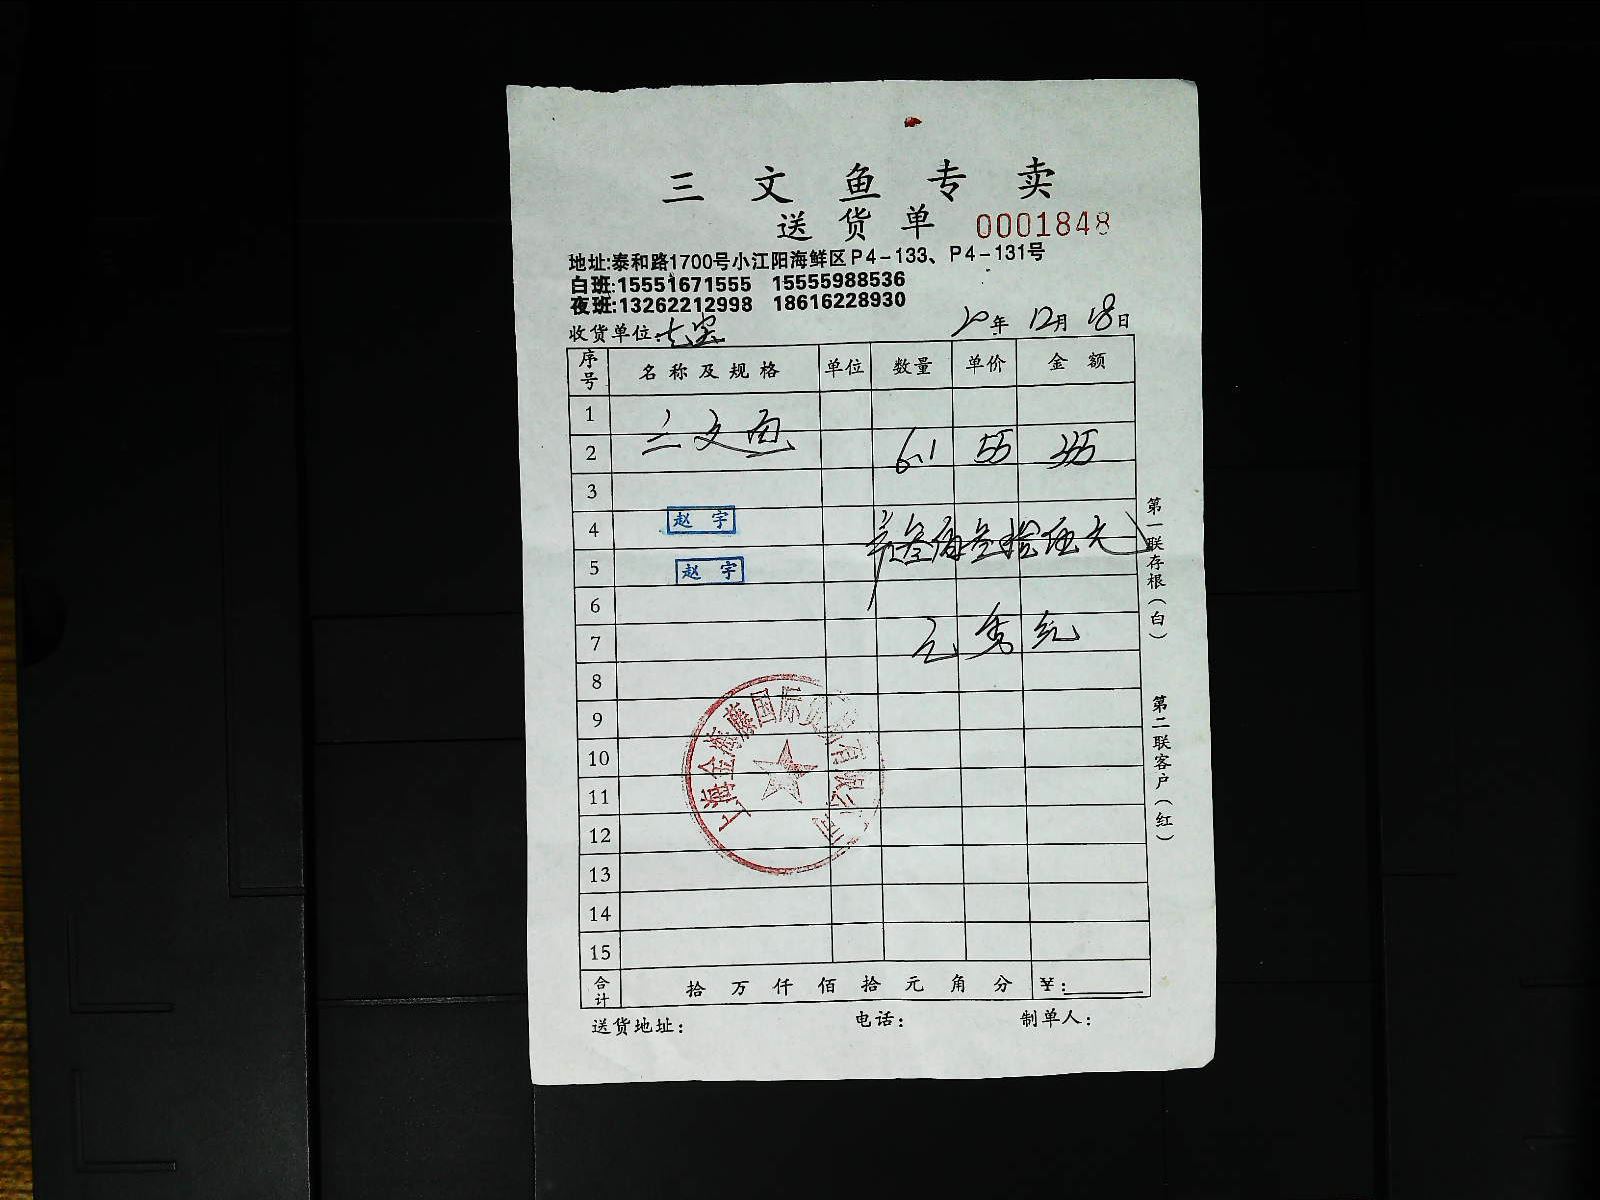 三文鱼专卖
送货单 0001848
地址:泰和路1700号小江阳海鲜区P4-133、P4-131号
白班:15551671555 15555988536
夜班:13262212998 18616228930
收货单位:七宝 20年12月18日
序号 名称及规格 单位 数量 单价 金额
1
三文鱼
2 6.1 55 335
3
4 赵宇
叁佰叁拾伍元
5 赵宇
6
7
8
9
10
11
12
13
14
15
上海金海藤国际贸易有限公司
合计 拾万仟佰拾元角分 ¥:
送货地址: 电话: 制单人:
第一联存根(白)
第二联客户(红)